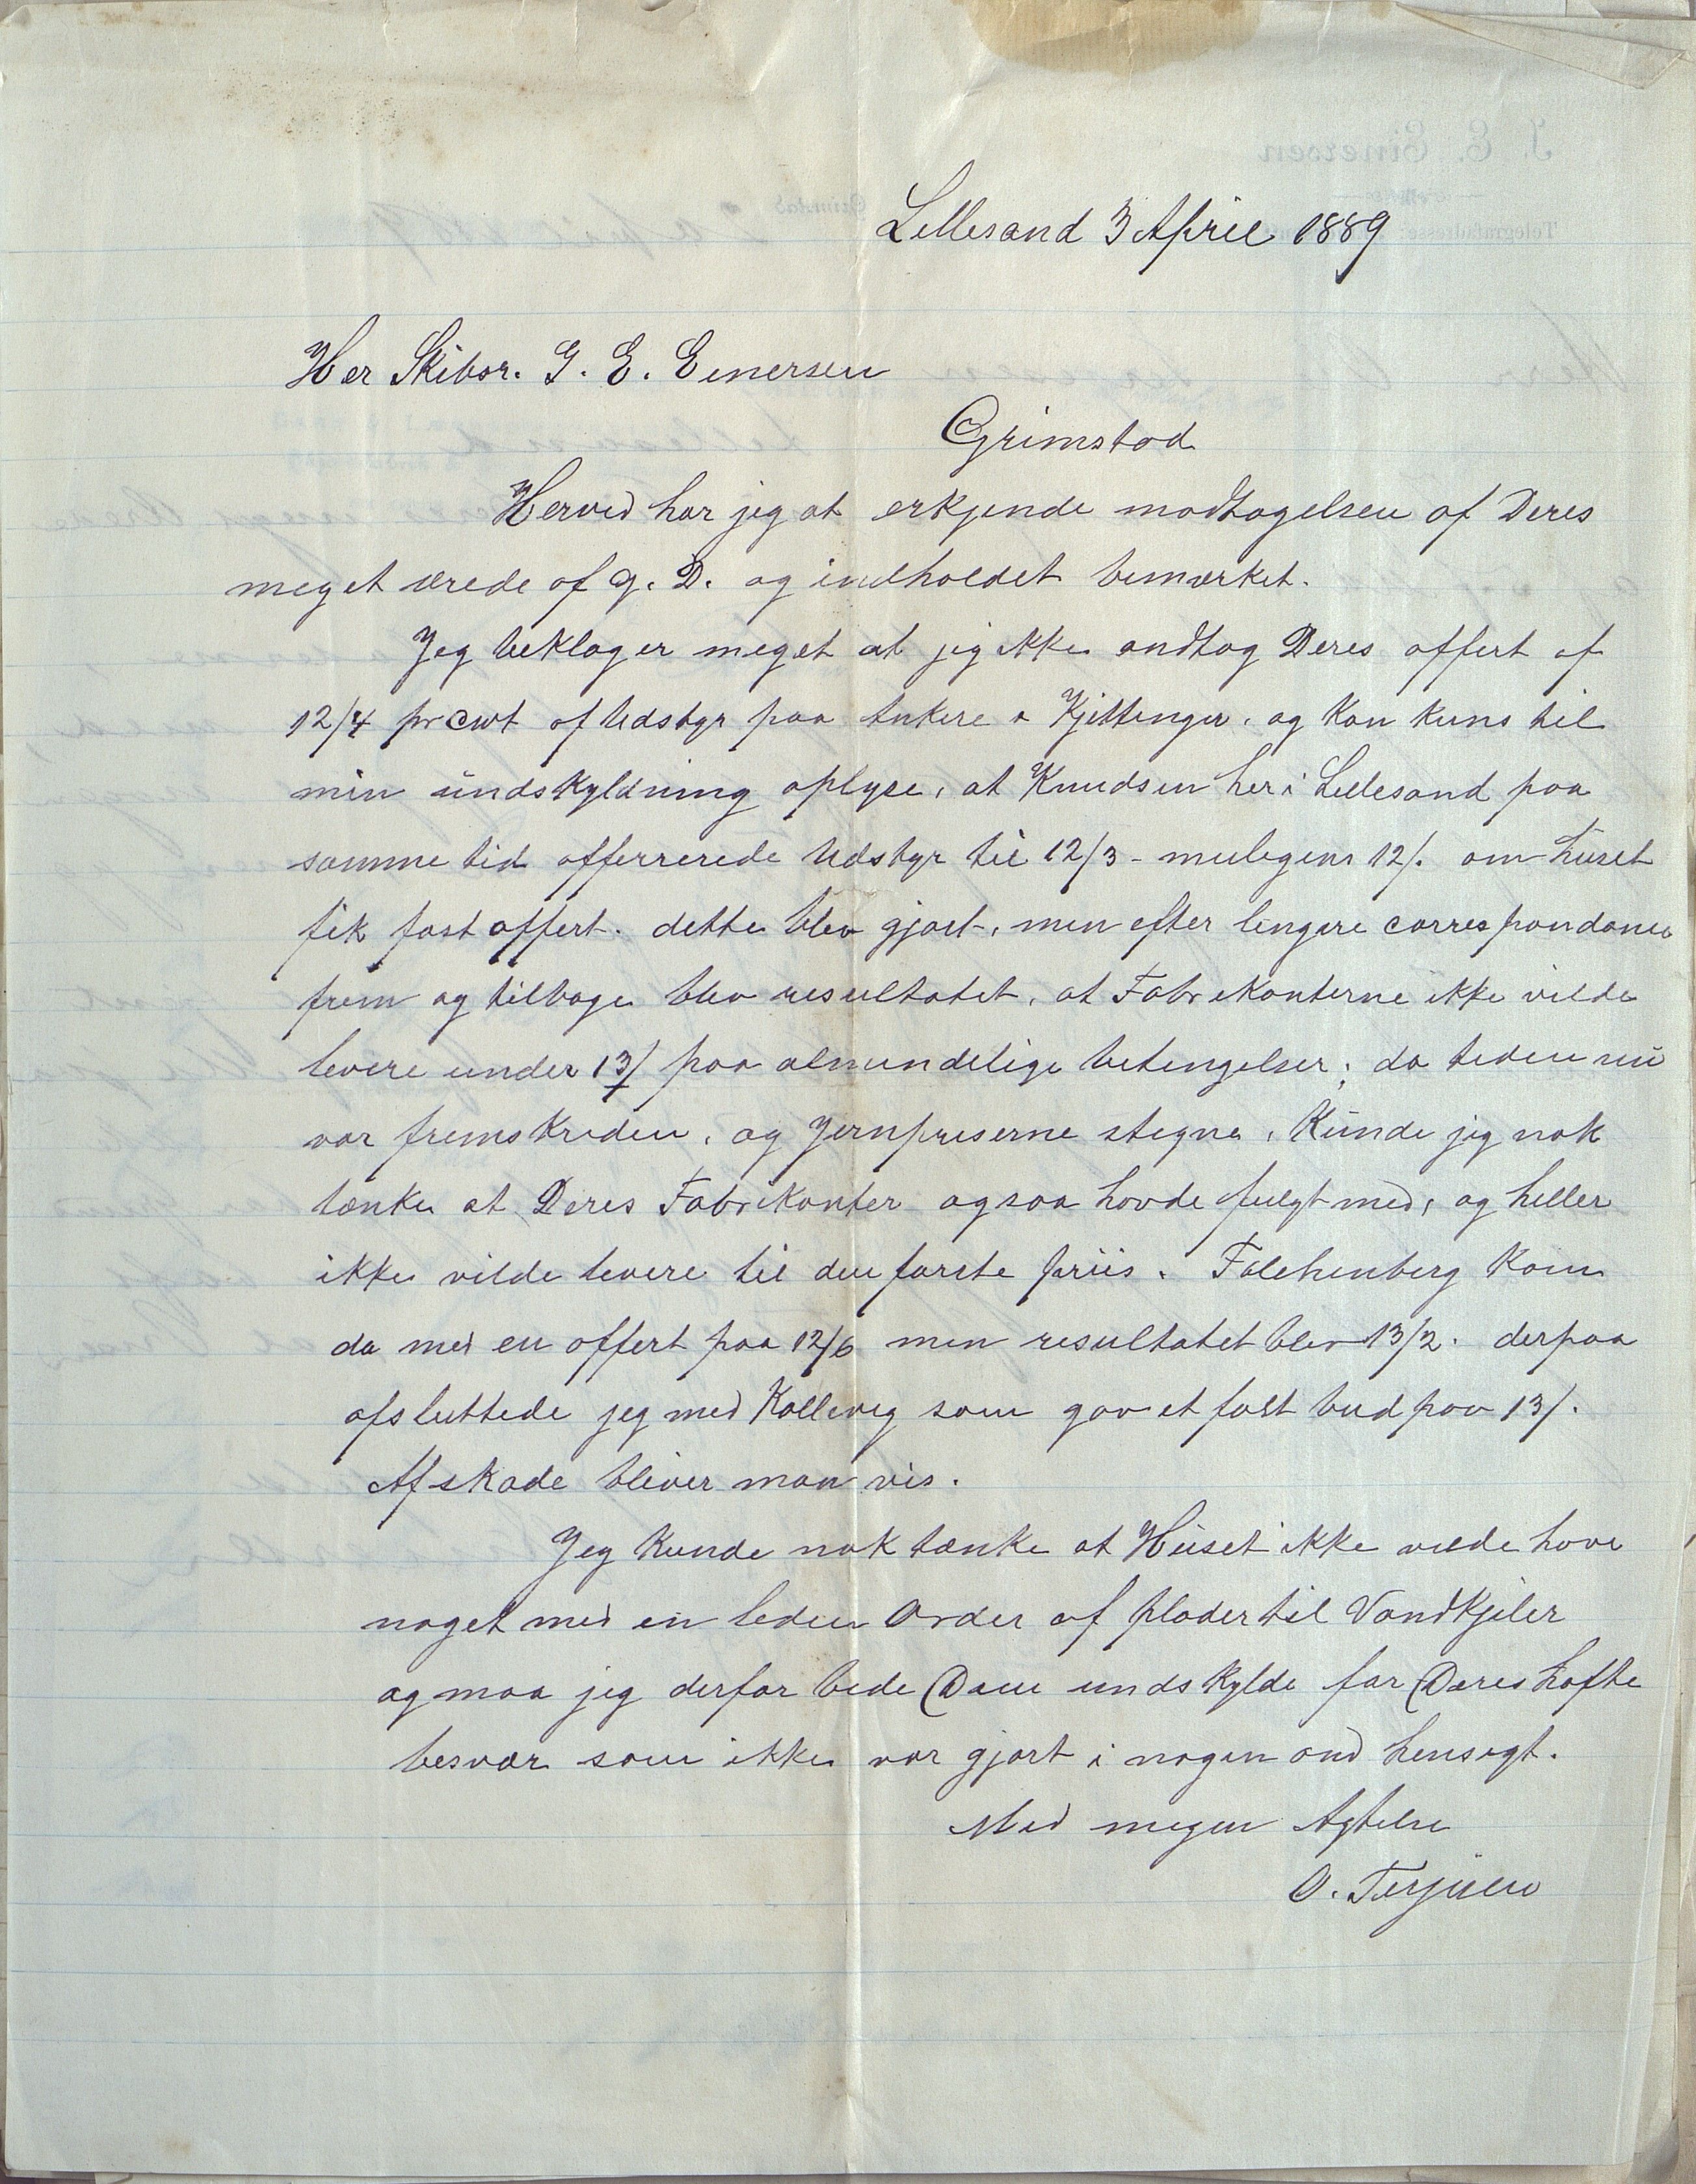 Lillesand 3 April 1889
Her Skibsr. J. E. Einersen
Grimstad
Herved har jeg at erkjende modtagelsen af Deres
meget ærede af g. D. og indholdet bemærket.
Jeg beklager meget at jeg ikke andtog Deres offert af
12/4 pr cwt af Udstyr paa Ankere & Kjettinger, og kan kuns til
min undskyldning oplyse, at Knudsen her i Lillesand paa
samme tid offererede Udstyr til 12/3 - muligens 12/. om huset
fik fast offert. dette blev gjort, men efter lengere correspondance
frem og tilbage blev resultatet, at Fabrikanterne ikke vilde
levere under 13/ paa almindelige betingelser; da tiden nu
var fremskriden, og Jernpriserne stegne, kunde jeg nok
tænke at Deres Fabrikanter ogsaa havde fulgt med, og heller
ikke vilde levere til den første priis. Falchenberg kom
da med en offert paa 12/6 men resultatet blev 13/2. derpaa
afsluttede jeg med Kallevig som gav et fast bud paa 13/.
Af skade bliver man vis.
Jeg kunde nok tænke at Huset ikke vilde have
noget med en leden Order af plader til Vandkjeler
og maa jeg derfor bede Dem undskylde for Deres hafte
besvær som ikke var gjort i nogen ond hensigt.
Med megen Agtelse
O. Terjesen